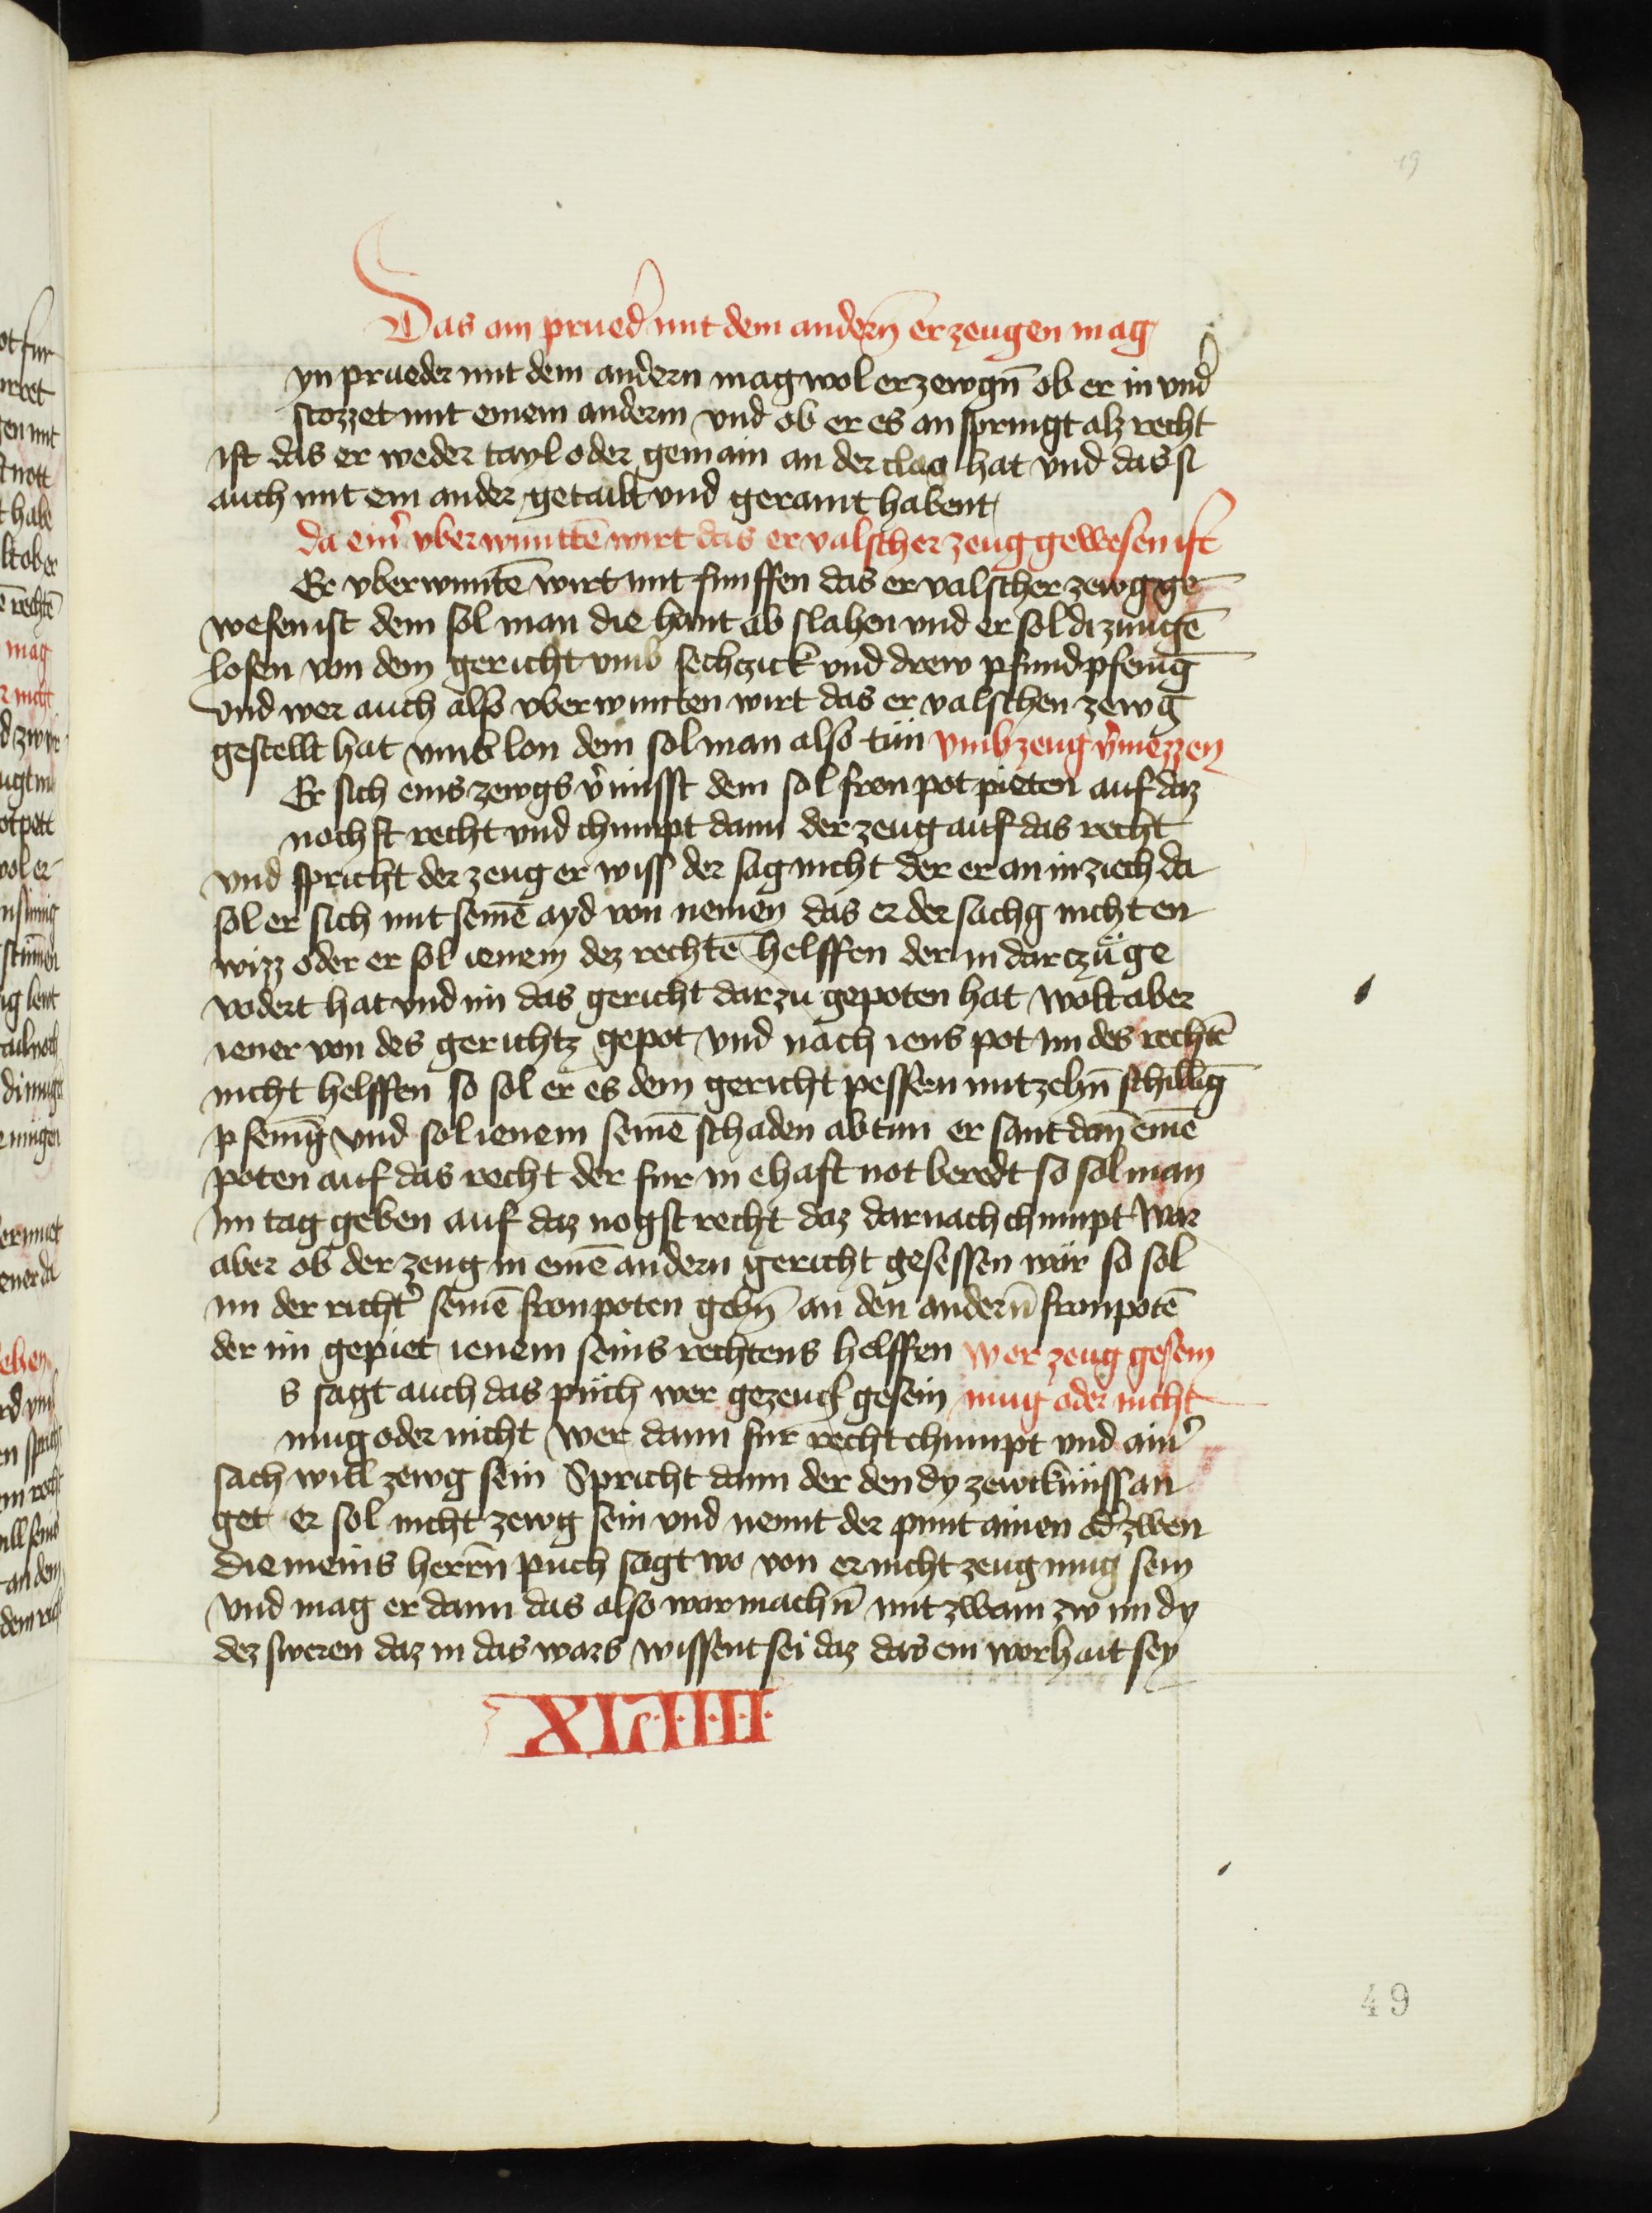 49
Das ain prueder mit dem andern̄ erzeugen mag
yn prueder mit dem andern mag wol erzewgn̄ ob er in vnd'
stozzet mit einem anderm vnd ob er es an springt alz recht
ist das er weder tayl oder gemain an der clag hat vnd das si
auch mit ein ander getailt vnd geramt habent
da ein' vber wuntten̄ wirt das er valscher zeug gewesen ist
Er vberwuntē wirt mit funffen das er valscher zewg ge
wesen ist dem sol man die hant ab slahen vnd er sol di zungē
losen von dem gericht vmb sechczick vnd drew pfund pfenīg
vnd wer auch also vberwunten wirt das er valschen zewg
gestellt hat vmb lon dem sol man also tün vmb zeug v'mezzen
Er sich eins zewgs v'misst dem sol fronpot pieten auf daz
nochst recht vnd chumpt dann der zeug auf das recht
vnd spricht der zeug er wiss der sag nicht der er an in ziech da
sol er sich mit seinē ayd von nemen das er der sachg nicht en
wizz oder er sol ienem dez rechtē helffen der in dar czü ge
vodert hat vnd im das gericht darzu gepoten hat wolt aber
iener von des gerichtz gepot vnd nach iens pot im des rechtē
nicht helffen so sol er es dem gericht pessern mit zehn̄ schillīg
pfenīg vnd sol ienem seinē schaden ab tun er sant dan̄ einē
poten auf das recht der fur in ehaft not beredt so sol man
im tag geben auf daz nogst recht daz darnach chumpt wär
aber ob der zeug in einē andern gericht gesessen wär so sol
im der richt' seinē fronpoten gebn̄ an den andern̄ fronpotē
der im gepiet ienem seins rechtens helffen wer zeug gesein
s sagt auch das püch wer gezeuck gesein mug oder nicht
mug oder nicht wer dann fur recht chumpt vnd ain'
sach will zewg sein Spricht dann der den dy zewcknüss an
get er sol nicht zewg sein vnd nennt der punt ainen od' zwen
die meins herrn̄ puch sagt wo von er nicht zeug mug sein
vnd mag er dann das also war machn̄ mit zwain zw im dy
dez sweren daz in das wars wissent sei daz das ein worhait sey
XLIIII
49